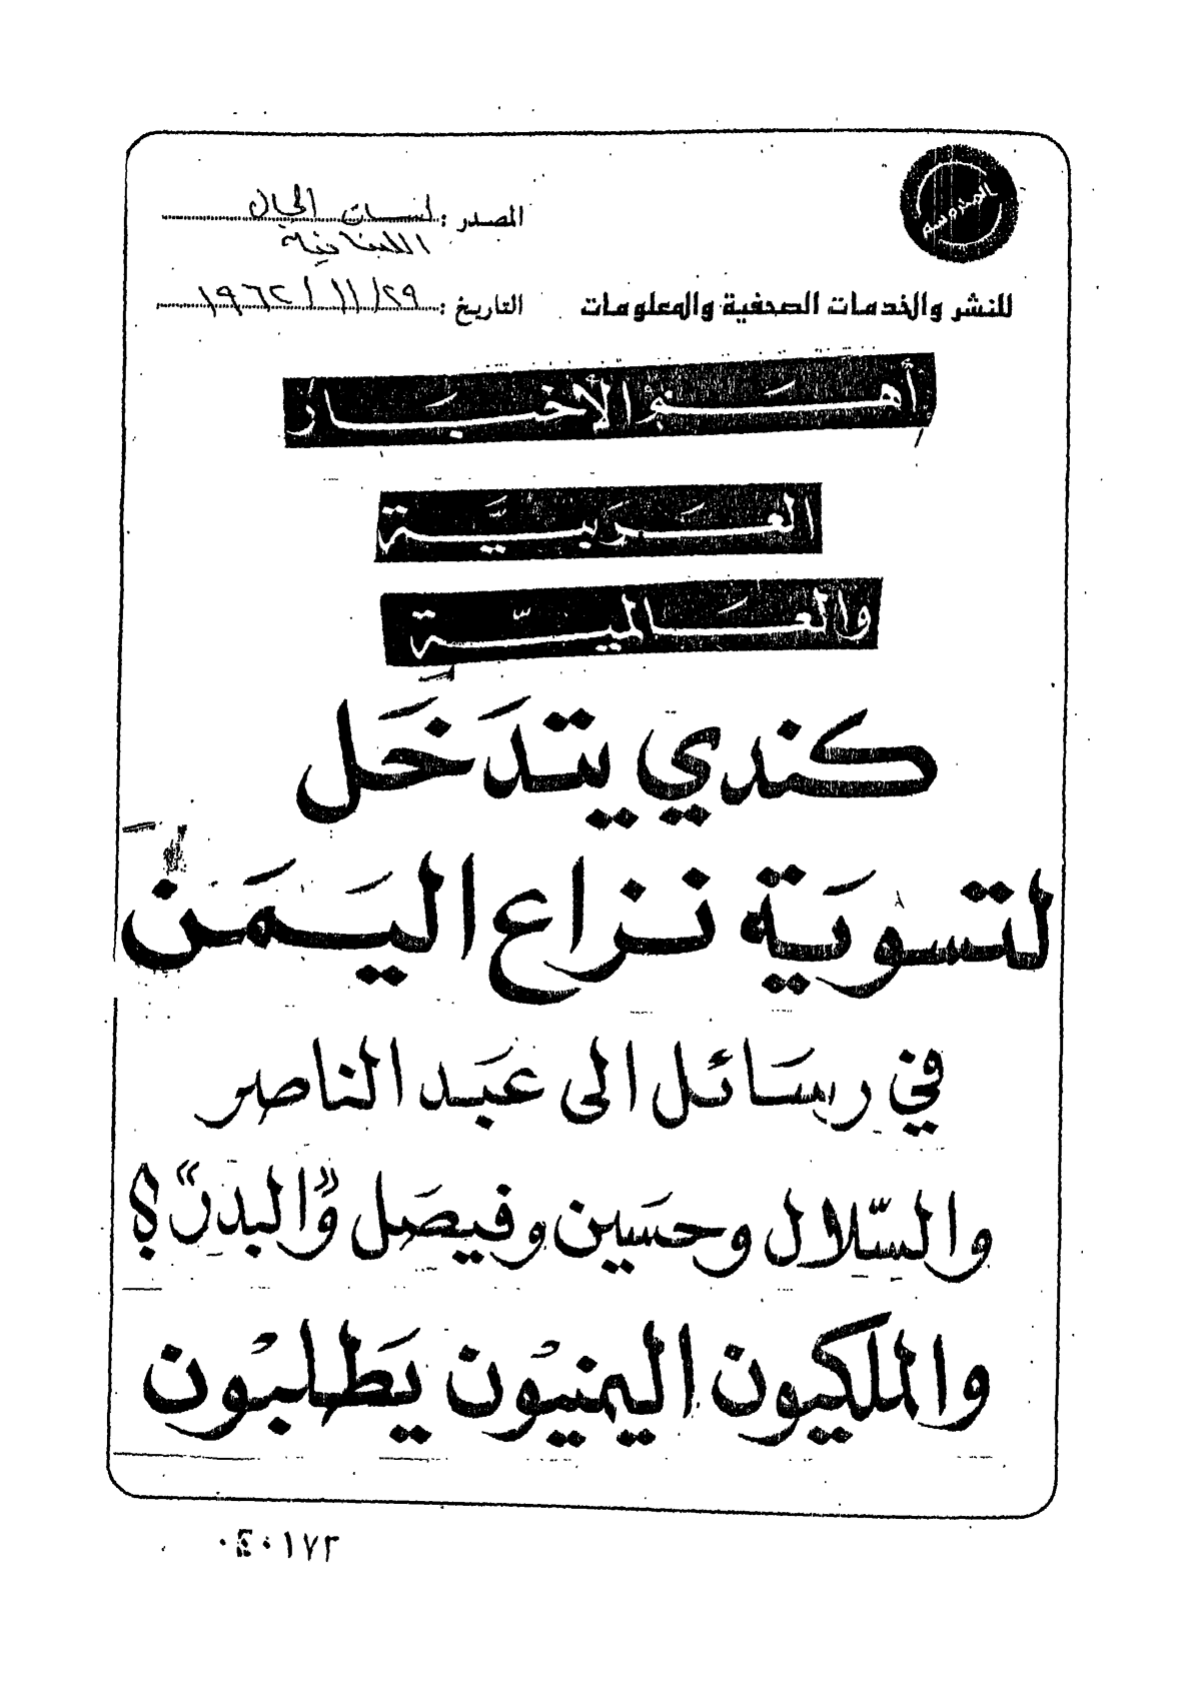 المصدر : لسان الحال
اللبنانية
للنشر والخدمات الصحفية والمعلومات
التاريخ : ٢٩/ ١١/ ١٩٦٢
أهم الأخبار
العربية
والعالمية
كندي يتدخل
لتسوية نزاع اليمن
في رسائل الى عبد الناصر
والسلال وحسين وفيصل و"البدر"؟
والملكيون اليمنيون يطلبون